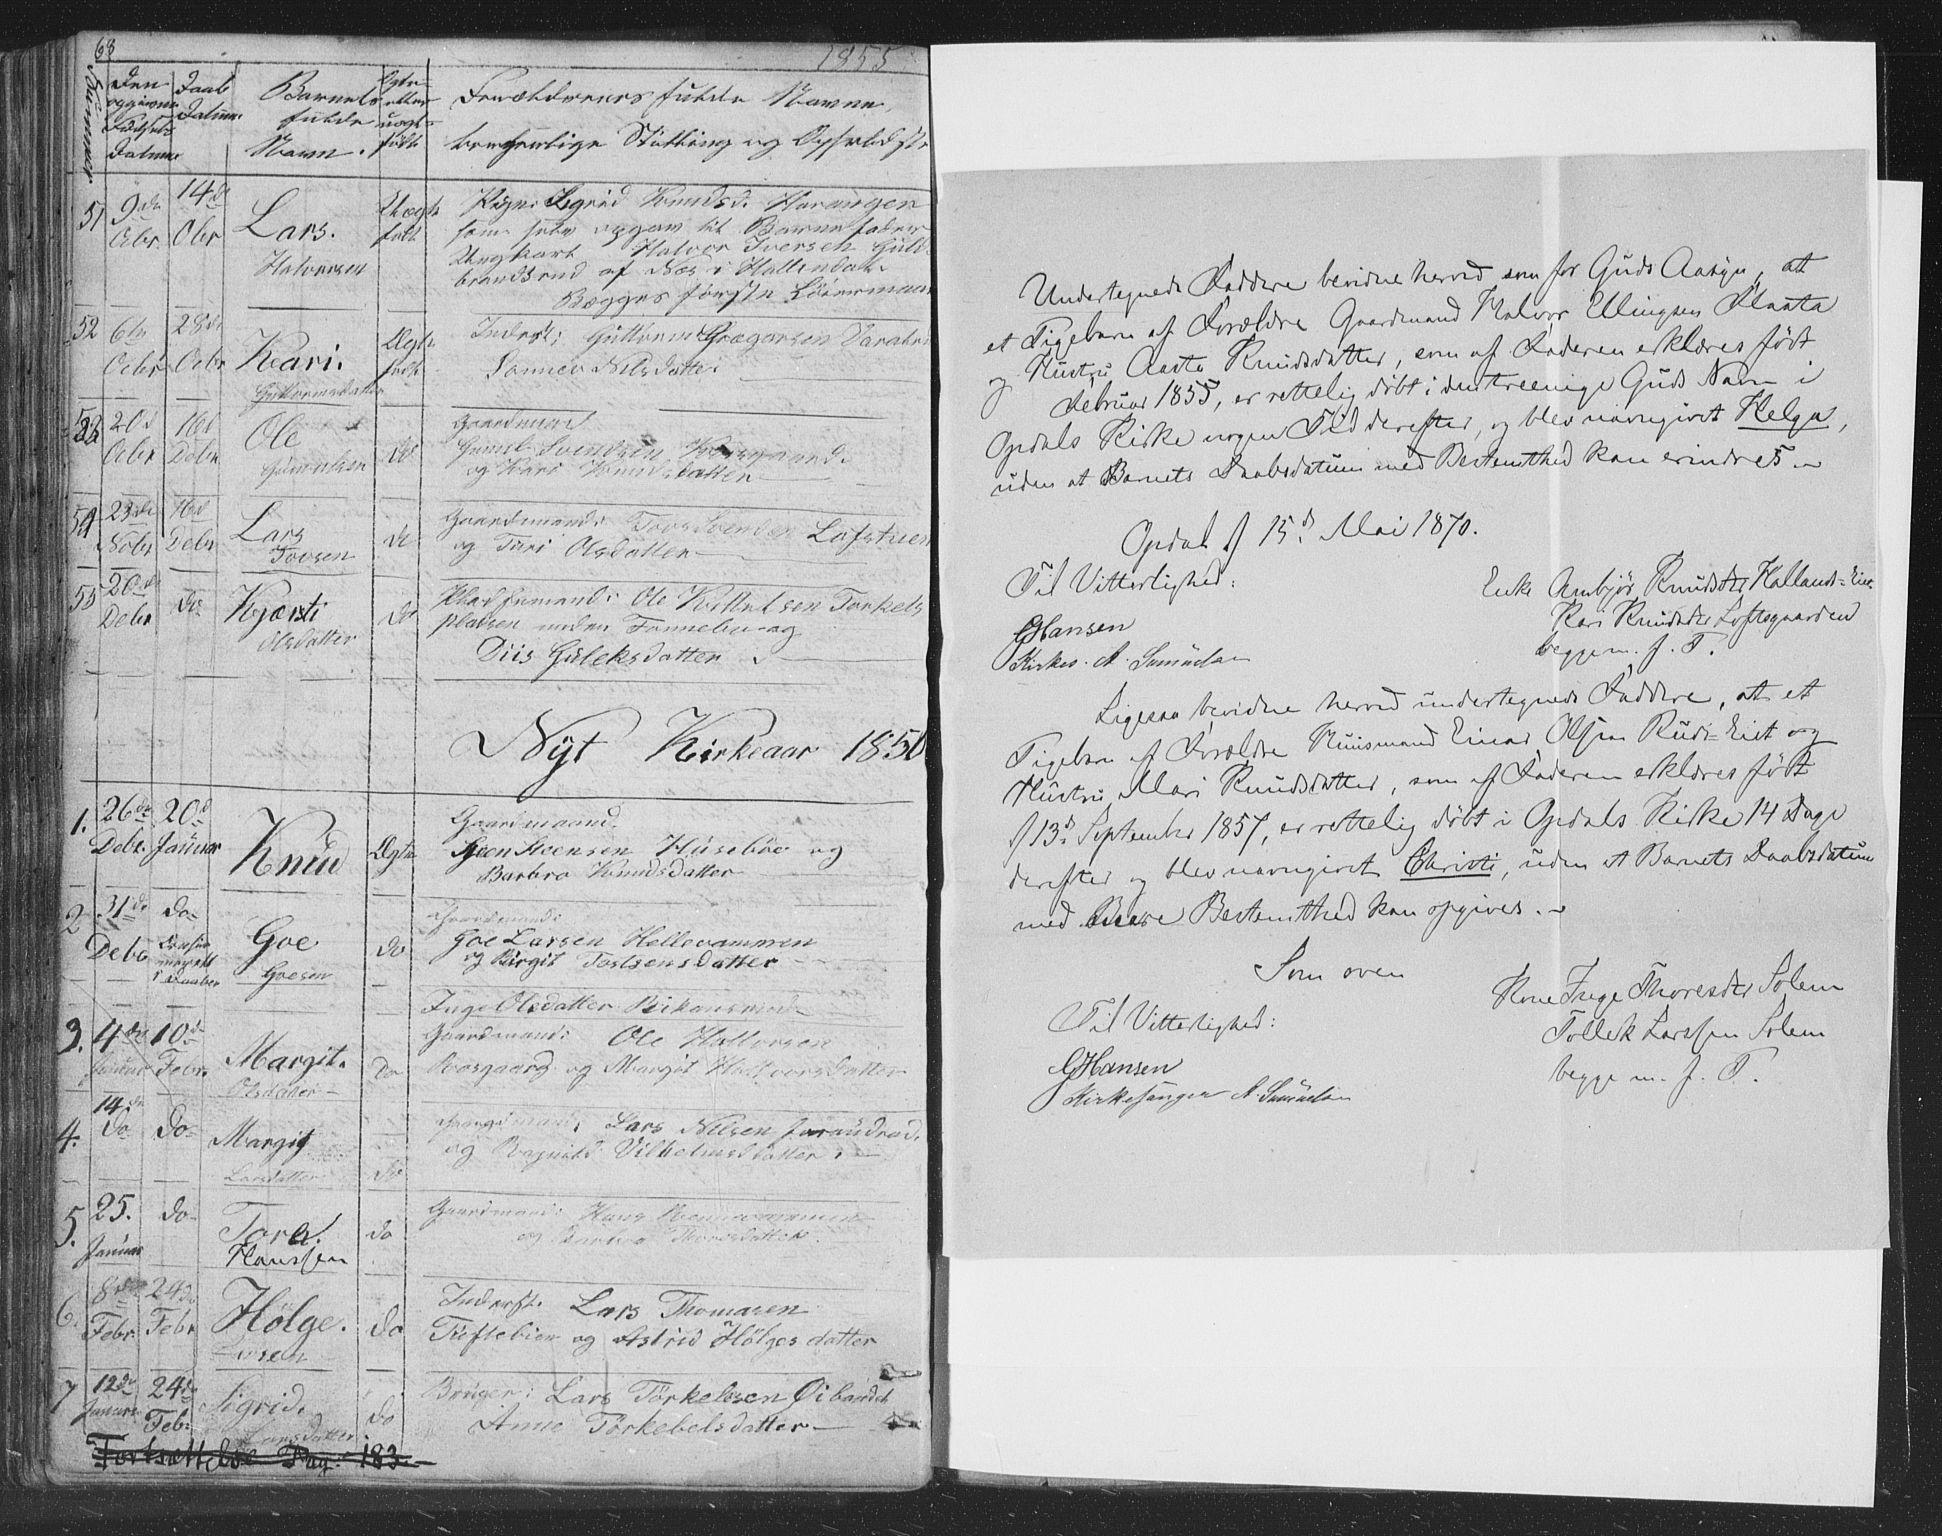 68
1855
Nummer
Den
opgivne
Fødsels
Datum
Daabs
Datum.
Barnets
fulde
Navn.
Ægte
eller
uægte
født
Forældrenes fulde Navne,
borgerlige Stilling og Opholdst
51
9de
Obr
14de
Obr
Lars.
Halvorsen
Uægte
født
Pige Sigrid Knudsd. Haraugen
som selv opgav til Barnefader
Ungkarl Halvor Iversen Guld-
brandsrud af Næs i Hallindal.
Begges første Leiermaal
52
6te
Octbr
28de
Octbr
Kari.
Guttormsdatter
Ægte
født
Inderst; Guttorm Gregarsen
Sønnev Nilsdatter
53
20d
Octbr
16d
Debr
Ole
do
Gaardmand
Svendsen
og Kari Knudsdatter
54
23de
Nobr
16d
Debr
Lars
Toosen
do
Gaardmand: Svendsen
og Turi Olsdatter
55
20de
Debr
do
Kjersti
Olsdatter
do
Pladsemand: Ole Torkels
pladsen under Tonnebu og
Guleksdatter
Nyt Kirkeaar 1856
1.
26de
Debr.
20d
Januar
Knud
Ægte
Gaardmand
Steen Steensen Huseboe og
Barbro Knudsdatter
2
31de
Debr
do
Goe
Goesen
do
Gaardmand:
Goe Larsen Hellevammen
og Birgit Tostensdatter
Inge Olsdatter
3.
4de
Januar
10de
Febr.
Margit.
Olsdatter
do
Gaardmand: Ole Halvorsen
Rosgaard og Margit Halvorsdatter
4.
14de
do
do
Margit
Larsdatter
do
Gaardmand, Lars Nilsen
og Ragnild Vilhelmsdatter
5.
25.
Januar
do
Tore.
Hanssen
do
Gaardmand: Hans
og Barbro Thoresdatter
6.
8de
Febr.
24de
Febr
Hølge.
Larsen
do
Inderst. Lars Thomasen
Tuftebien og Astrid Hølgesdatter
7
12de
Januar
24de
Feb:
Sigrid.
Larsdatter
do
Bruger: Lars Törkelsen Öibandet
Anne Törkebelsdatter
Fortsættelse Pag: 183
Undertegnede Faddere bevidne herved som for Guds Aasyn, at
et Pigebarn af Forældre Gaardmand Halvor Ellingsen Flaata
og Hustru Aaste Knudsdatter, som af Faderen erklæres født
Februar 1855, er rettelig døbt i den treenige Guds Navn i
Opdals Kirke nogen Tid derefter, og blev navngivet Helga,
uden at Barnets Daabsdatum med Bestemthed kan erindres.
Opdal d 15d Mai 1870.
Til Vitterlighed:
GHansen
Kirkes. A. Samuelsen
Enke Ambjør Knudsdtr Hallands-Eiet
Kari Knudsdtr Loftsgaarden
begge m. f. P.
Ligesaa bevidne herved undertegnede Faddere, at et
Pigebarn af Forældre Huusmand Einar Olsen Ruds-Eiet og
Hustru Mari Knudsdatter, som af Faderen erklæres født
d 13d September 1857, er rettelig døbt i Opdals Kirke 14 Dage
derefter og blev navngivet Christi, uden at Barnets Daabsdatum
med Bestemthed kan opgives.
Som oven
Til Vitterlighed:
GHansen
Kirkesanger A. Samuelsen
Kone Inge Thoresdtr Solem
Tollek Larssen Solem
begge m. f. P.